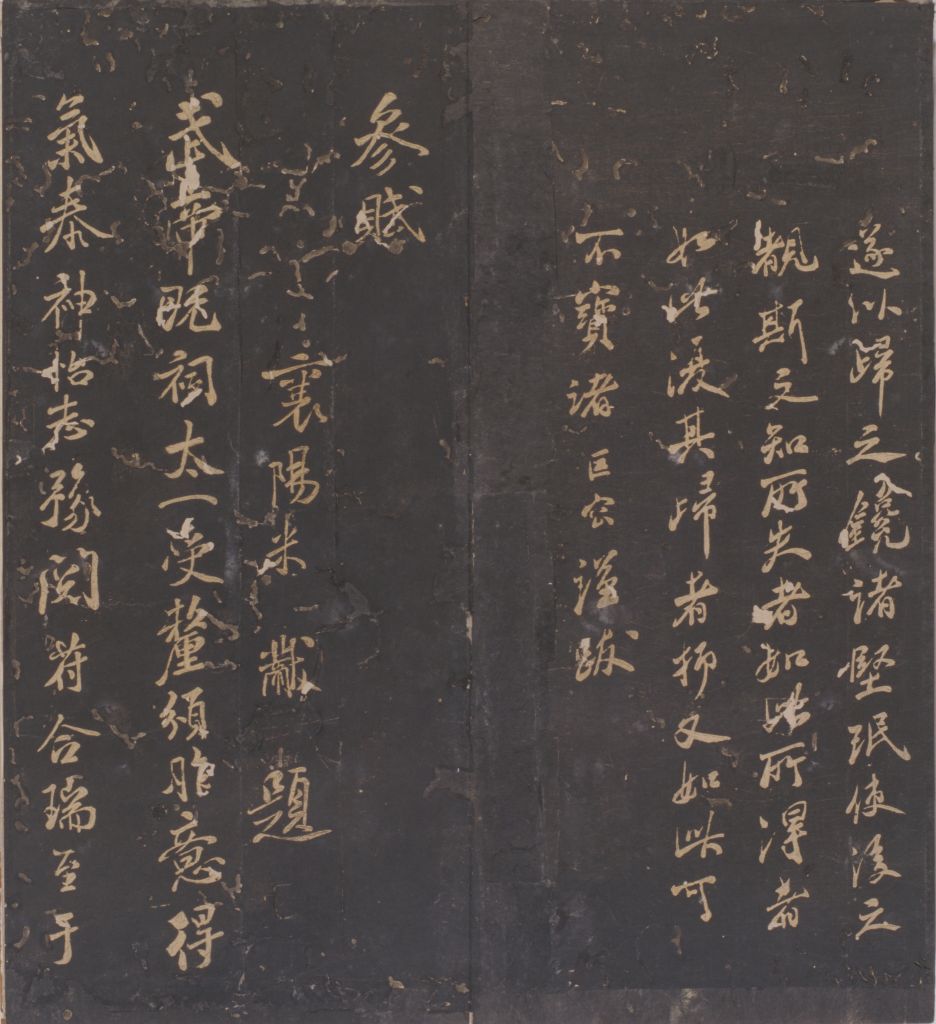 遂以歸之鑱諸堅珉使後之
觀斯文知所失者如此所得者
如此漫其歸者抑又如此可
不寶諸匡宏謹跋
參賦
襄陽米黻題
武帝既祠太一受釐頒胙意得
氣泰神怡志豫閱符合瑞至于